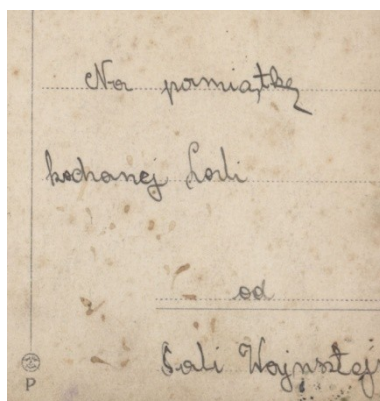 Na pamiątkę
kochanej Loli
od
Sali Wajnsztej
P